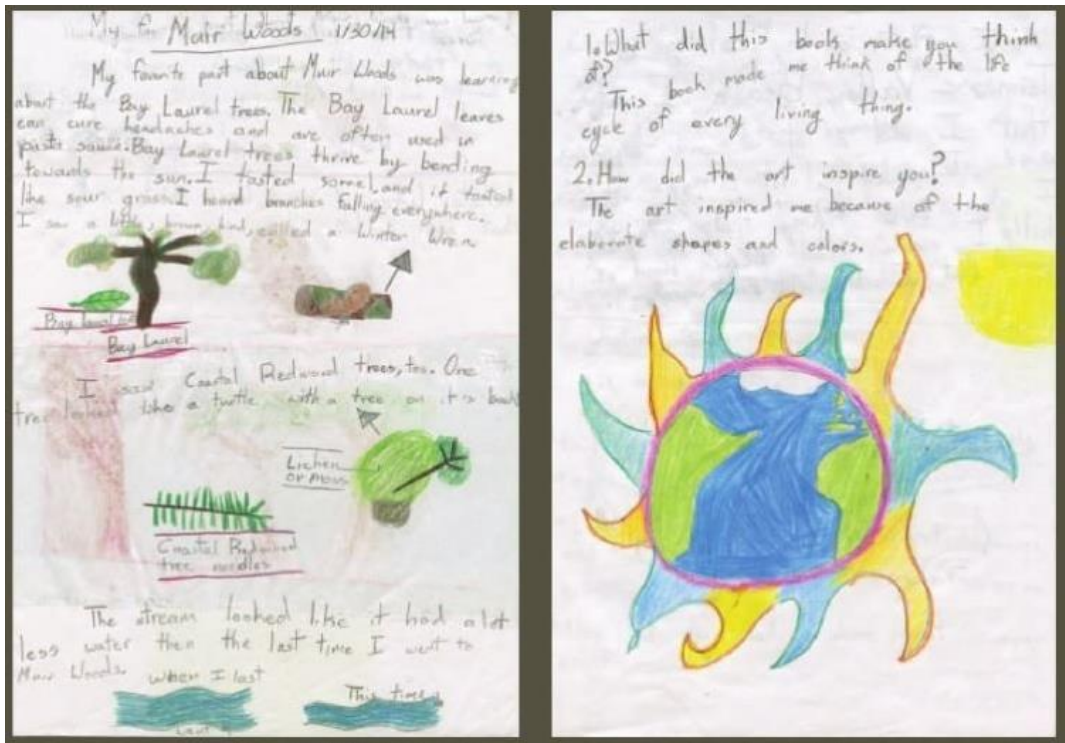 Muir Woods 1/30/14
My favorite part about Muir Woods was learning
about the Bay Laurel trees. The Bay Laurel leaves
can cure headaches and are often used in
sauce. Bay Laurel trees thrive by bending
towards the sun. I tasted sorrel, and it tasted
like sour grass. I heard branches falling everywhere.
I saw a little, brown bird, called a Winter Wren
Bay laurel
Bay Laurel
I saw Coastal Redwood trees, too. One
tree looked like a turtle with a tree on it's back
Lichen
or moss
Coastal Redwood
tree needles
The stream looked like it had a lot
less water then the last time I went to
Muir Woods.
when I last
went
This time
1. What did this book make you think
of?
This book made me think of the life
cycle of every living thing.
2. How did the art inspire you?
The art inspired me because of the
elaborate shapes and colors.